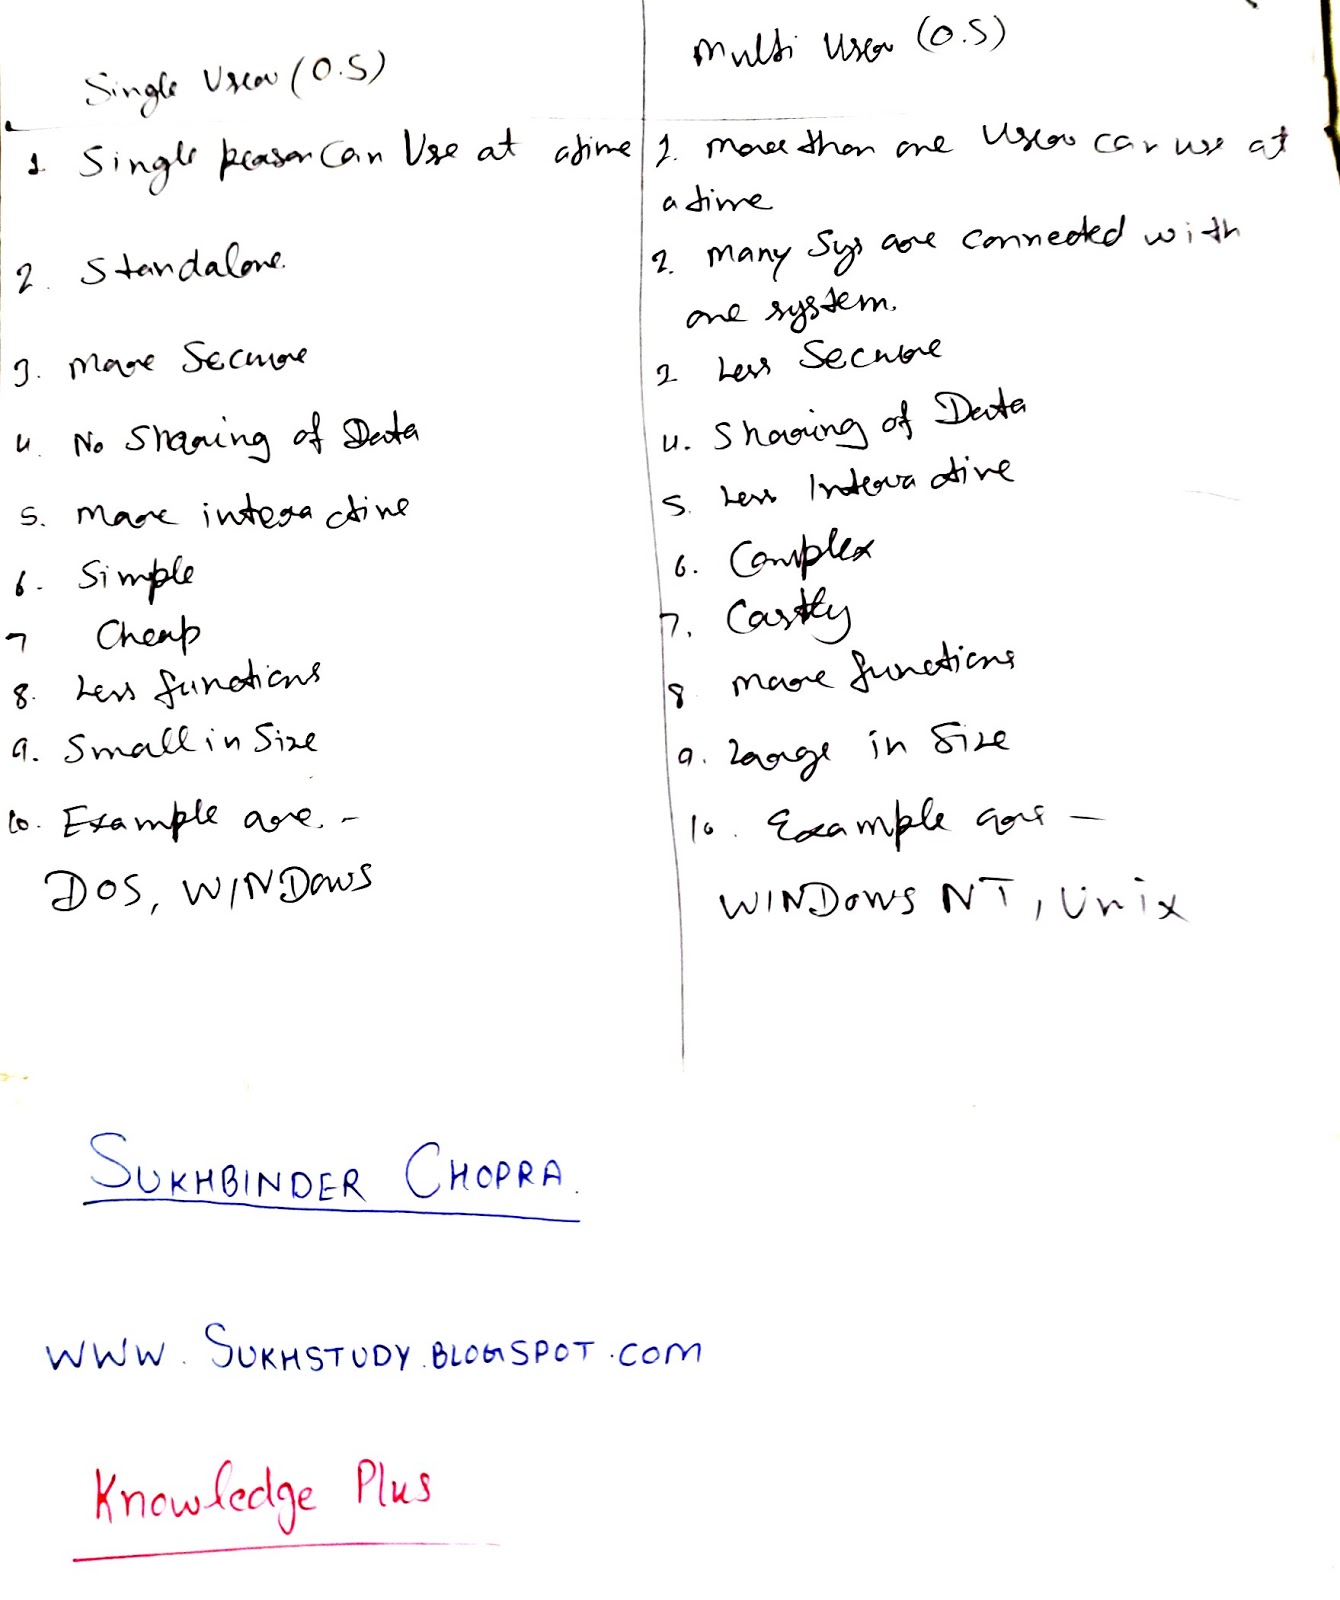 Single User (O.S)
1. Single person Can Use at atime
2. Standalone.
3. More Secure
4. No Sharing of Data
5. More interactive
6. Simple
7 Cheap
8. Less functions
9. Small in Size
10. Example are. -
DOS, WINDOWS
Multi User (O.S)
1. More than one User can use at
a time
2. Many Sys are connected with
one system.
2 Less Secure
4. Sharing of Data
5. Less Interactive
6. Complex
7. Costly
8 More functions
9. Large in Size
10. Example are -
WINDOWS NT, Unix
SUKHBINDER CHOPRA.
WWW.SUKHSTUDY.BLOGSPOT.COM
Knowledge Plus